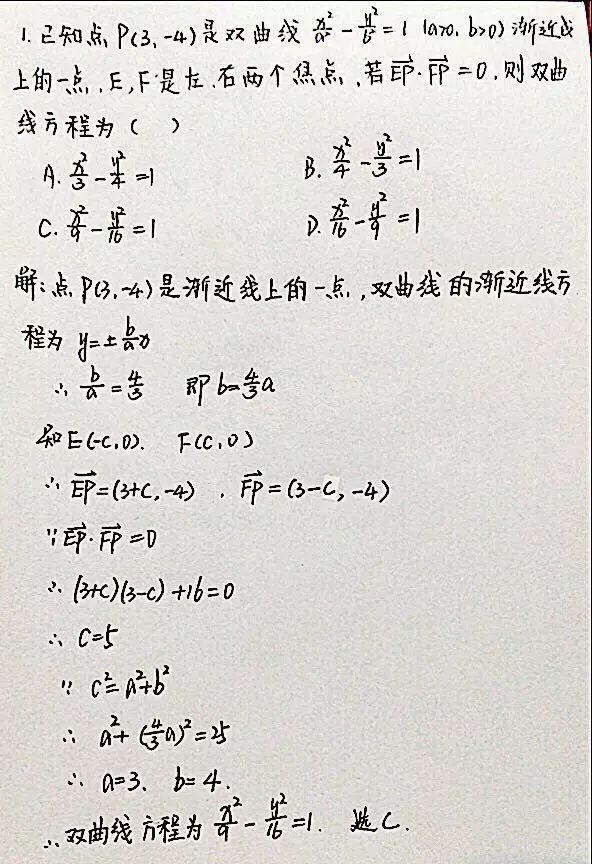 1. 已知点 P(3,-4)是双曲线 x²/a² - y²/b² = 1 (a>0, b>0) 渐近线
上的一点, E,F是左、右两个焦点,若EP→·FP→=0,则双曲
线方程为( )
A. x²/3 - y²/4 = 1 B. x²/4 - y²/3 = 1
C. x²/9 - y²/16 = 1 D. x²/16 - y²/9 = 1
解:点P(3,-4)是渐近线上的一点,双曲线的渐近线方
程为 y=±b/a x
∴ b/a = 4/3 即 b=4/3a
知E(-C,0)、 F(C,0)
∴ EP→=(3+C,-4) , FP→=(3-C,-4)
∵ EP→·FP→=0
∴ (3+C)(3-C)+16=0
∴ C=5
∵ C²=a²+b²
∴ a²+(4/3a)²=25
∴ a=3、 b=4.
∴双曲线方程为 x²/9 - y²/16 = 1. 选C.